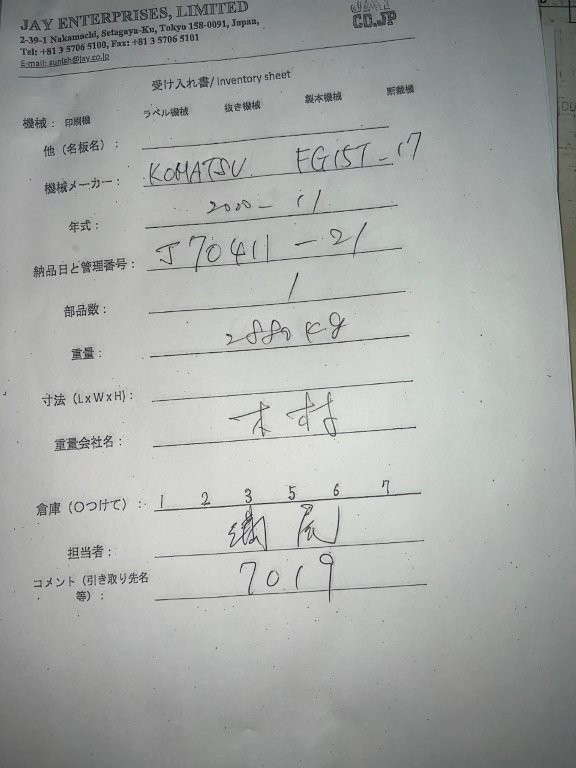 JAY ENTERPRISES, LIMITED
2-39-1 Nakamachi, Setagaya-Ku, Tokyo 158-0091, Japan,
Tel: +81 3 5706 5100, Fax: +81 3 5706 5101
E-mail: sunish@jay.co.jp
CO.JP
受け入れ書/ Inventory sheet
機械: 印刷機 ラベル機械 抜き機械 製本機械 断裁機
他(名板名):
機械メーカー: KOMATSU FG15T-17
年式: 2000-11
納品日と管理番号: J70411-21
部品数: 1
重量: 2880 kg
寸法(LxWxH):
重量会社名: 木村
倉庫(〇つけて): 1 2 3 5 6 7
担当者: 尾
コメント(引き取り先名等): 7019